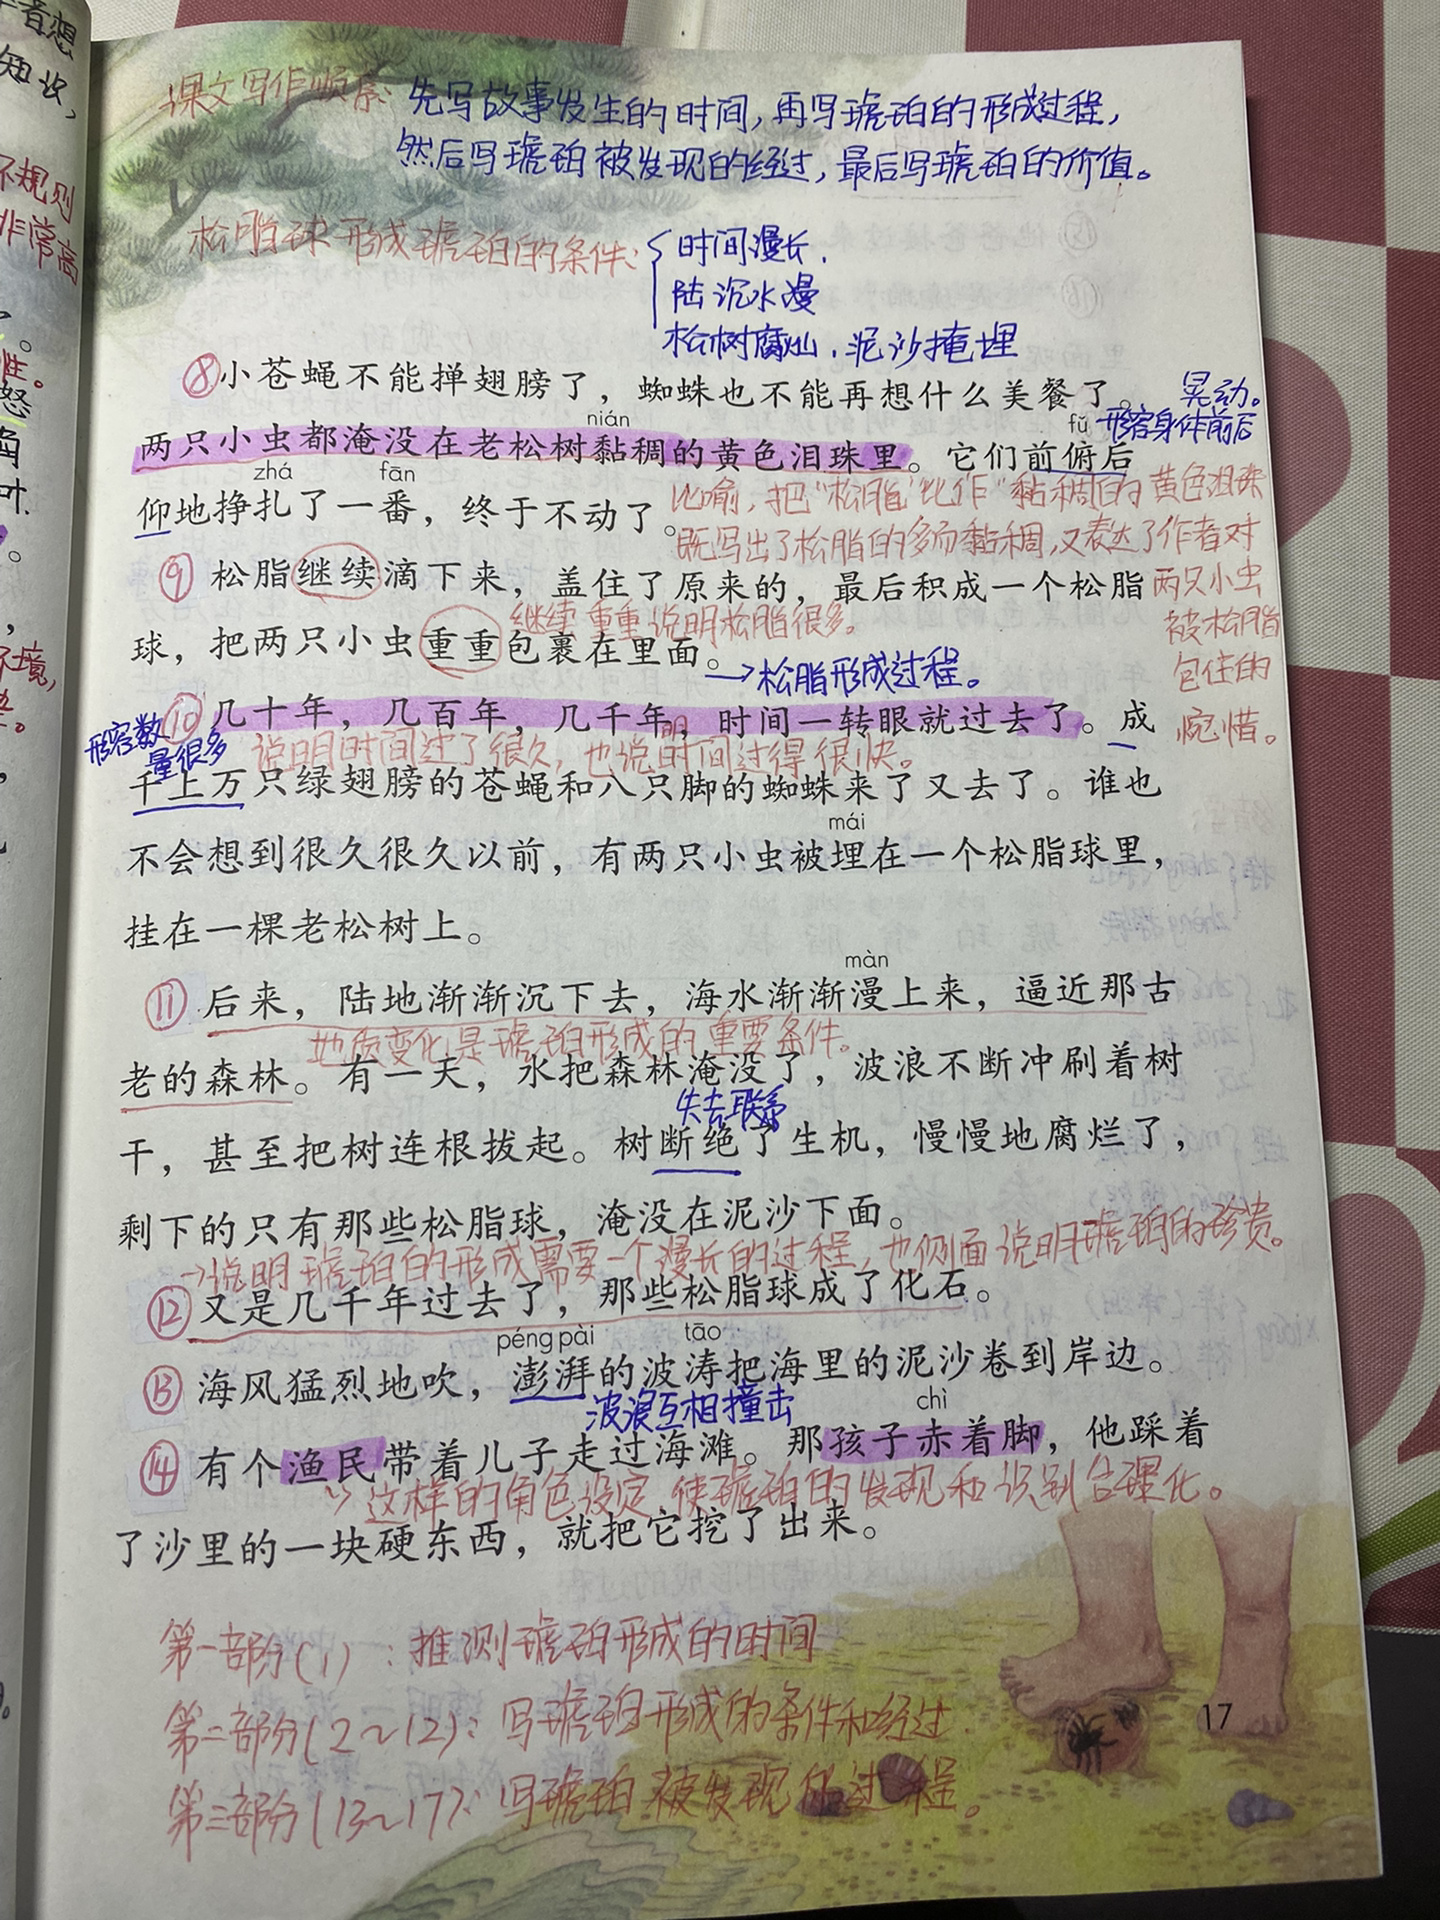 课文写作顺序:先写故事发生的时间,再写琥珀的形成过程,
然后写琥珀被发现的经过,最后写琥珀的价值。
松脂球形成琥珀的条件:
时间漫长.
陆沉水漫
松树腐烂.泥沙掩埋
⑧小苍蝇不能掸翅膀了,蜘蛛也不能再想什么美餐了。
晃动。
形容身体前后
nián
fǔ
两只小虫都淹没在老松树黏稠的黄色泪珠里。它们前俯后
zhá fān
仰地挣扎了一番,终于不动了。
比喻,把“松脂”比作“黏稠的黄色泪珠
既写出了松脂的多而黏稠,又表达了作者对
两只小虫
被松脂
包住的
惋惜。
⑨松脂继续滴下来,盖住了原来的,最后积成一个松脂
继续 重重 说明松脂很多。
球,把两只小虫重重包裹在里面。
→松脂形成过程。
⑩几十年,几百年,几千年,时间一转眼就过去了。成
形容数
量很多
说明时间过了很久,也说明时间过得很快。
千上万只绿翅膀的苍蝇和八只脚的蜘蛛来了又去了。谁也
mái
不会想到很久很久以前,有两只小虫被埋在一个松脂球里,
挂在一棵老松树上。
màn
⑪后来,陆地渐渐沉下去,海水渐渐漫上来,逼近那古
地质变化是琥珀形成的重要条件。
老的森林。有一天,水把森林淹没了,波浪不断冲刷着树
失去联系
干,甚至把树连根拔起。树断绝了生机,慢慢地腐烂了,
剩下的只有那些松脂球,淹没在泥沙下面。
→说明琥珀的形成需要一个漫长的过程,也侧面说明琥珀的珍贵。
⑫又是几千年过去了,那些松脂球成了化石。
péng pài tāo
⑬海风猛烈地吹,澎湃的波涛把海里的泥沙卷到岸边。
波浪互相撞击
chì
⑭有个渔民带着儿子走过海滩。那孩子赤着脚,他踩着
这样的角色设定,使琥珀的发现和识别合理化。
了沙里的一块硬东西,就把它挖了出来。
第一部分(1):推测琥珀形成的时间
第二部分(2~12):写琥珀形成的条件和经过.
第三部分(13~17):写琥珀被发现的过程。
17